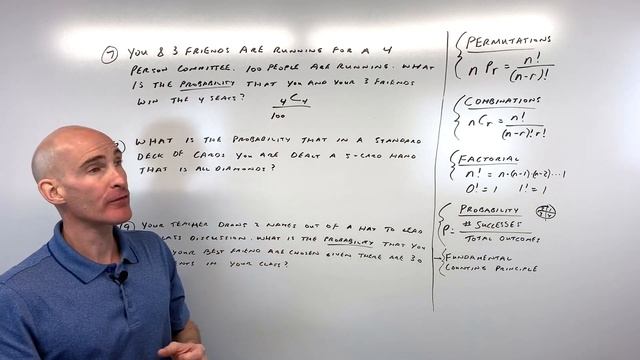 7) YOU & 3 FRIENDS ARE RUNNING FOR A 4
PERSON COMMITTEE. 100 PEOPLE ARE RUNNING. WHAT
IS THE PROBABILITY THAT YOU AND YOUR 3 FRIENDS
WIN THE 4 SEATS?
4C4
100
WHAT IS THE PROBABILITY THAT IN A STANDARD
DECK OF CARDS YOU ARE DEALT A 5-CARD HAND
THAT IS ALL DIAMONDS?
9) YOUR TEACHER DRAWS 2 NAMES OUT OF A HAT TO LEAD
CLASS DISCUSSION. WHAT IS THE PROBABILITY THAT YOU
YOUR BEST FRIEND ARE CHOSEN GIVEN THERE ARE 30
IN YOUR CLASS?
PERMUTATIONS
nPr = n!/(n-r)!
COMBINATIONS
nCr = n!/(n-r)!r!
FACTORIAL
n! = n·(n-1)·(n-2)···1
0! = 1 1! = 1
PROBABILITY
P = # SUCCESSES
TOTAL OUTCOMES
→FUNDAMENTAL
COUNTING PRINCIPLE